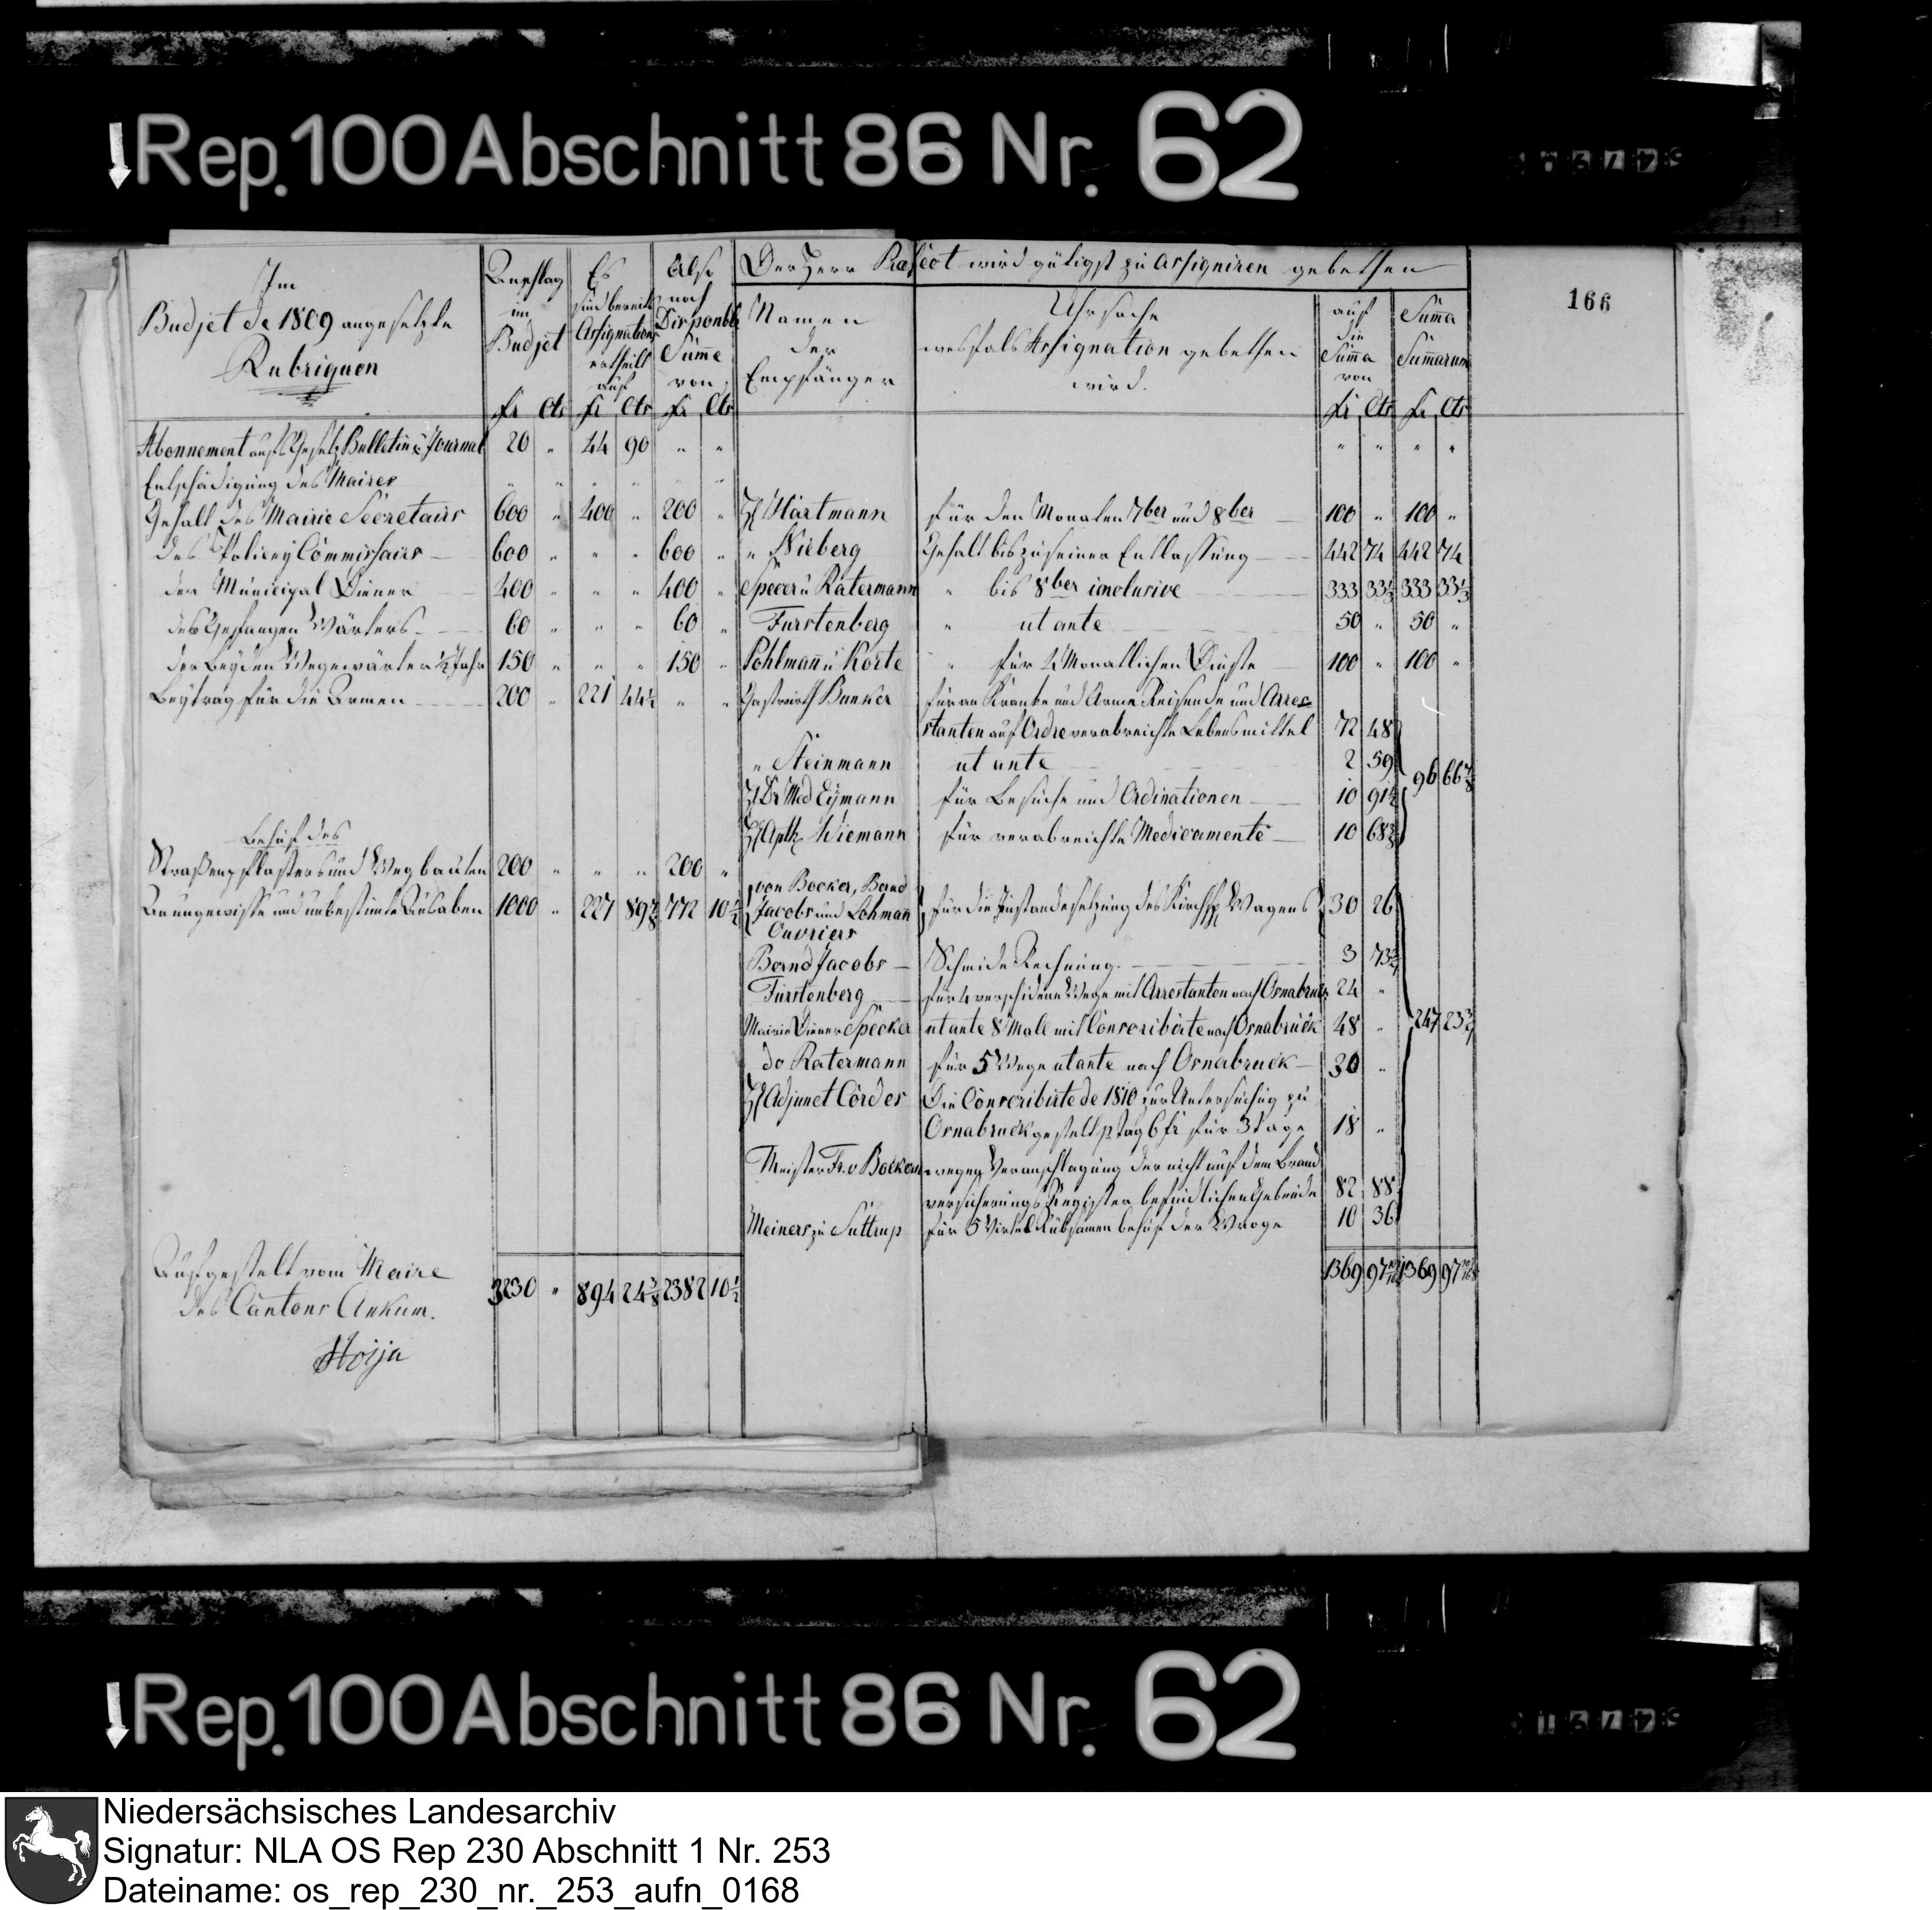 Rep. 100 Abschnitt 86 Nr. 62
166
Im
Budjet de 1809 angesetzte
Rubriquen
Anschlag
im
Budjet
Es
sind bereits
Assignationen
ertheilt
auf
Also
noch
Disponble
Summe
von
Der Herr Præfect wird gütigst zu assigniren gebethen
Namen
der
Empfänger
Uhrsache
weshals Assignation gebethen
wird.
auf
die
Summa
von
Summa
Summarum
Fr Cts Fr Cts Fr Cts Fr Cts Fr Cts
Abonnement aufs Gesetz Bulletin u Journal 20 " 44 90 " " " " " "
Entschädigung des Maires " " " " " "
Gehalt des Mairie Secretairs 600 " 400 " 200 " H Hartmann für den Monaten 7ber und 8ber 100 " 100 "
des Policey Commissairs 600 " " " 600 " " Nieberg Gehalt bis zu seiner Entlassung 442 74 442 74
der Municipal Diener 400 " " " 400 " Specker u Ratermann " bis 8ber inclusive 333 33⅓ 333 33⅓
des Gefangen Wärters 60 " " " 60 " Furstenberg " ut ante 50 " 50 "
der beyden Wegewärter ½ Jahr 150 " " " 150 " Pohlmann u Korte " für 4 Monatlichen Dienste 100 " 100 "
Beytrag für die Armen 200 " 221 44½ " " Gastwirth Bunker für an Kranke und Arme Reisende und Arre-
stanten auf Ordre verabreichte Lebensmittel 72 48
" Steinmann ut ante 2 59
96 66⅞
H Dr Med Eymann für Besuche und Ordinationen 10 91
H Apth. Wiemann für verabreichte Medicamente 10 68
Behuf des
Straßenpflasters und Wegbauten 200 " " " 200 "
An ungewisse und unbestimte Ausgaben 1000 " 227 89⅞ 772 10½
von Bocker, Bernd
Jacobs und Lohmann
Ouvriers
für die Instandesetzung des Kirchsp Wagens 30 26
Bernd Jacobs Schmide Rechnung 3 73
Fürstenberg für 4 verschidene Wege mit Arrestanten nach Osnabruck 24 "
Mairie Diener Specker ut ante 8 Male mit Conscribirte nach Osnabrück 48 "
247 23
do Ratermann für 5 Wege ut ante nach Osnabruck 30 "
H Adjunct Cordes Die Conscribirte de 1810 zur Untersuchung zu
Osnabruck gestelt p tag 6 fr für 3 tage 18 "
Meister Fr. v Bocker wegen Veranschlagung der nicht auf dem Brand
versicherungs Register befindlichen Gebeude 82 88
Meiners zu Suttrup für 5 Virtel Rübsamen behuf der Wroge 10 36
Aufgestelt vom Maire
des Cantons Ankum.
3230 " 894 24⅜ 2382 10½ 1369 97 1369 97
Rep. 100 Abschnitt 86 Nr. 62
Niedersächsisches Landesarchiv
Signatur: NLA OS Rep 230 Abschnitt 1 Nr. 253
Dateiname: os_rep_230_nr._253_aufn_0168